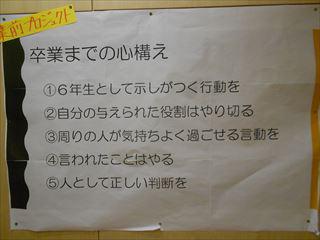 業前プロジェクト
卒業までの心構え
①6年生として示しがつく行動を
②自分の与えられた役割はやり切る
③周りの人が気持ちよく過ごせる言動を
④言われたことはやる
⑤人として正しい判断を